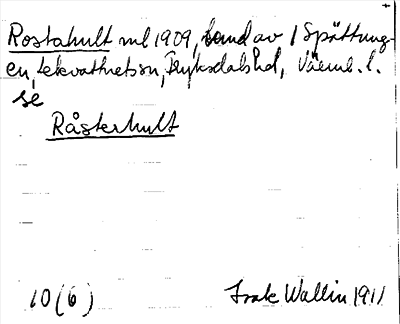 Rostahult ml 1909, av / Spättung-
en, Lekvattnets sn, Fryksdals hd, Värml. l.
se
Råsterhult
10 (6) Isak Wallin 1911